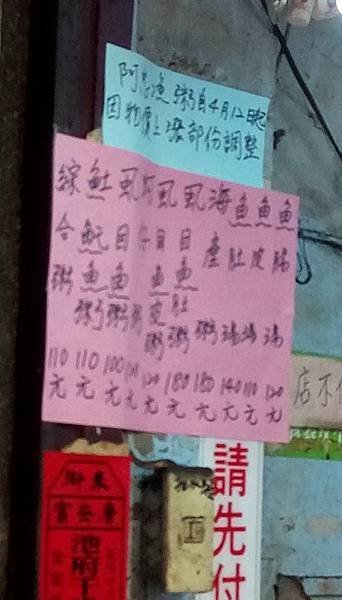 阿漁粥自4月12日起
因物價上漲部份調整
綜合粥 110元
魚粥 110元
虱目魚粥 100元
蚵仔粥 元
虱目魚皮粥 120元
虱目魚肚粥 180元
海產粥 180元
魚肚湯 140元
魚皮湯 110元
魚腸湯 120元
店不
請先付
池府王